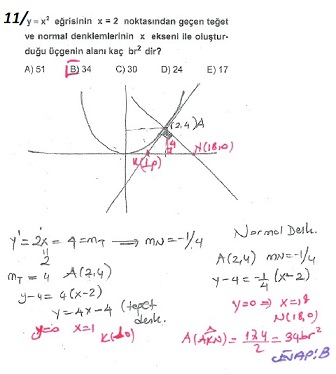 11/ y = x² eğrisinin x = 2 noktasından geçen teğet
ve normal denklemlerinin x ekseni ile oluştur-
duğu üçgenin alanı kaç br² dir?
A) 51 B) 34 C) 30 D) 24 E) 17
(2,4)A
4
K(1,0)
N(18,0)
y' = 2x = 4 = m_T → m_N = -1/4
2
m_T = 4 A(2,4)
y-4 = 4(x-2)
y = 4x-4 (teğet denk.
y=0 x=1 K(1,0)
Normal Denk.
A(2,4) m_N = -1/4
y-4 = -1/4 (x-2)
y=0 ⇒ x=18
N(18,0)
A(AKN) = 17.4/2 = 34br²
CEVAP:B